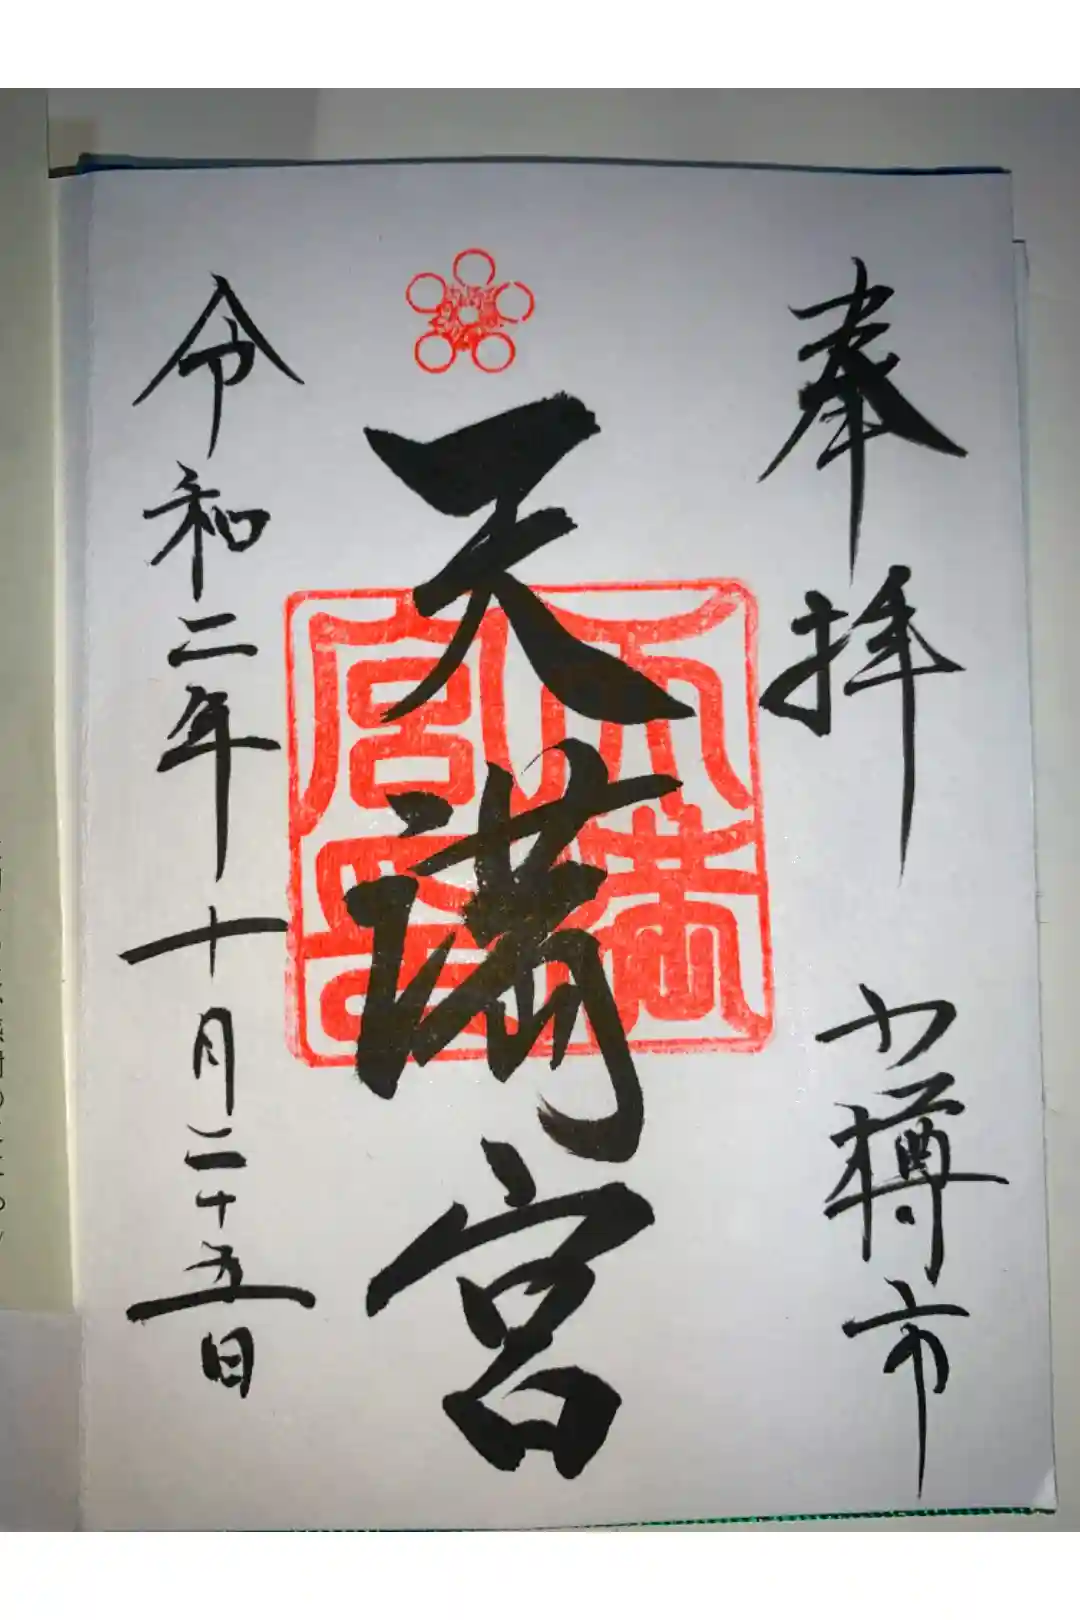 奉拝
小樽市
天満宮
天満宮
令和二年十月二十五日